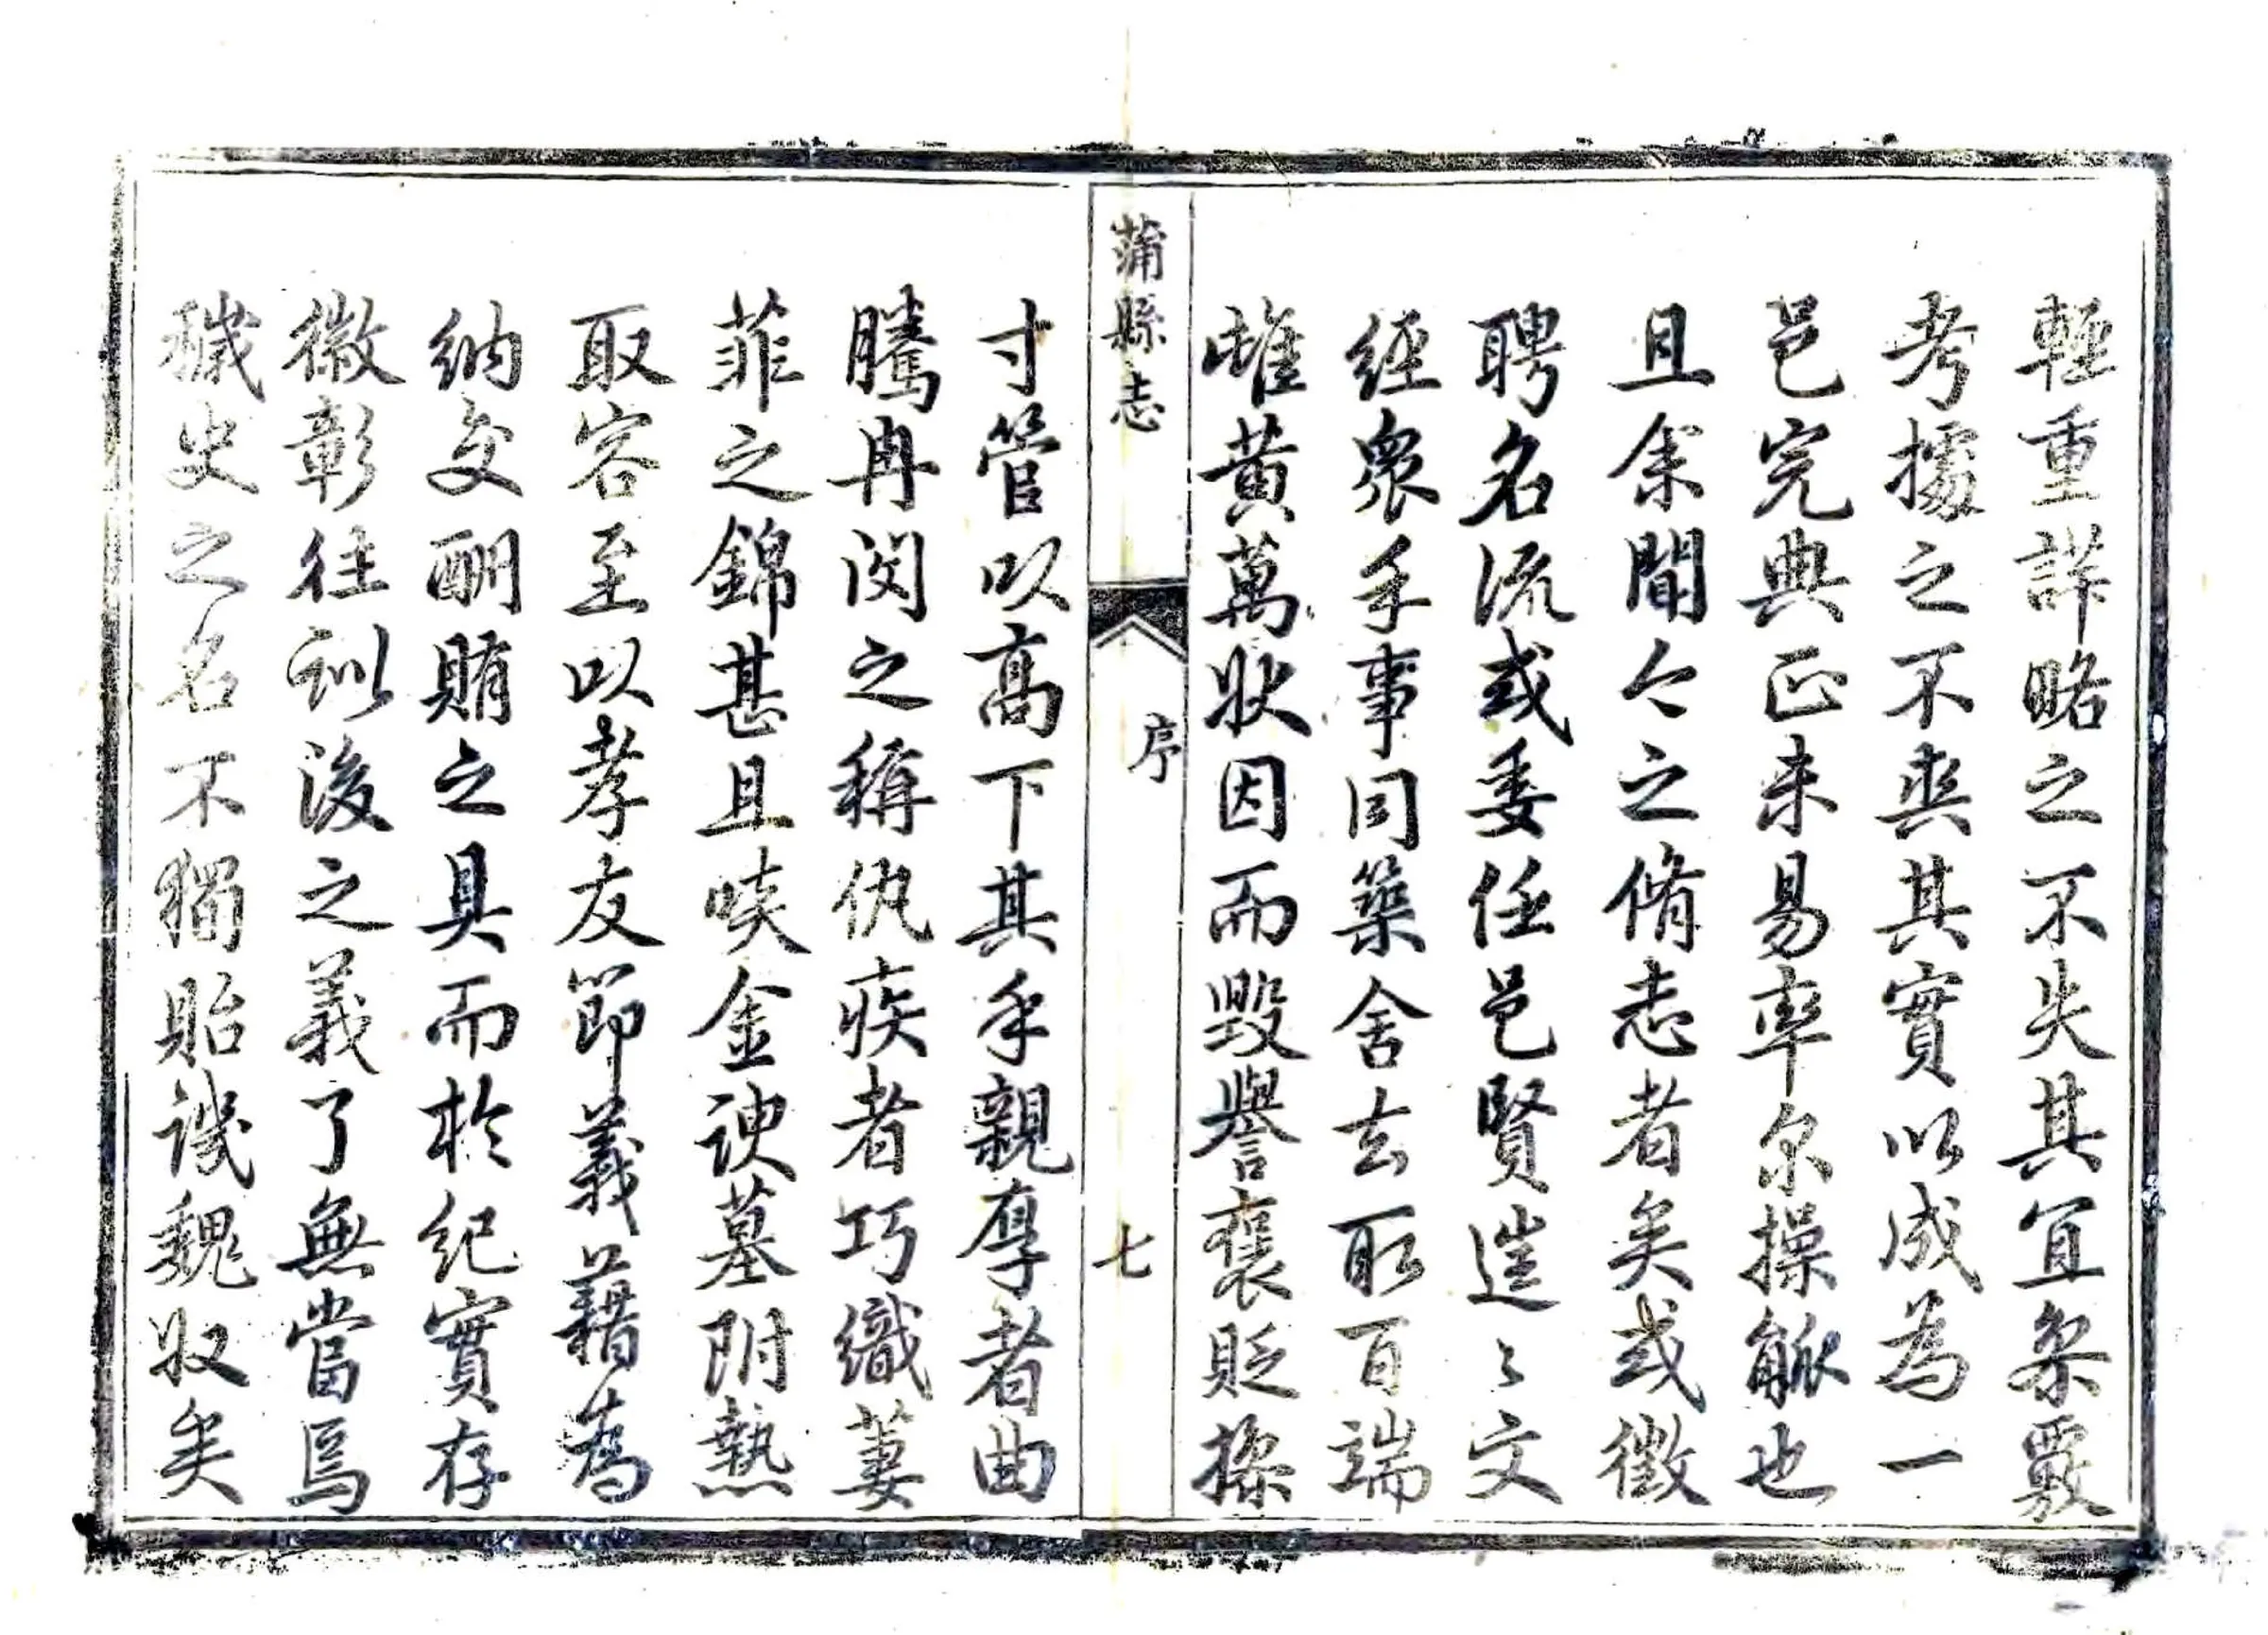 輕重詳略之不失其宜參覈
考據之不爽其實以成為一
邑完典正未易率尔操觚也
且余閒今之脩志者矣或徵
聘名流或委任邑賢篚〻文
經眾手事同築舍去取百端
雌黃萬狀因而毀譽褒貶操
蒲縣志
序
七
寸管以高下其手親厚者曲
騰冉闵之稱仇疾者巧織萋
菲之錦甚且啖金諛墓附熱
取容至以孝友節義藉為
納交酬賄之具而於紀實存
徵彰往訓後之義了無當焉
穢史之名不獨貽譏魏收矣